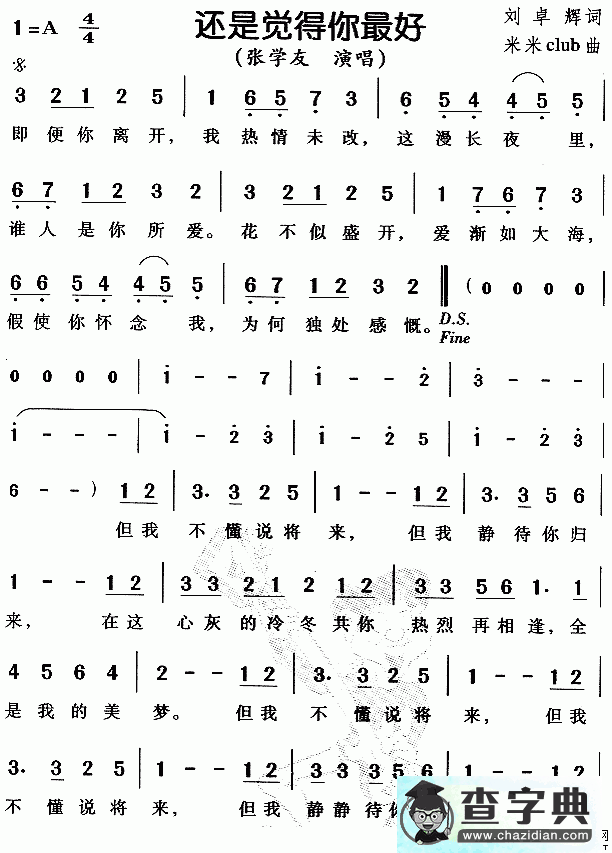 还是觉得你最好
1=A 4/4
(张学友 演唱)
刘卓辉词
米米club曲
3 2 1 2 5 | 1 6 5 7 3 | 6 5 4 4 5 5 |
即便你离开，我热情未改，这漫长夜里，
6 7 1 2 3 2 | 3 2 1 2 5 | 1 7 6 7 3 |
谁人是你所爱。花不似盛开，爱渐如大海，
6 6 5 4 4 5 5 | 6 7 1 2 3 2 ‖ (0 0 0 0 |
假使你怀念我，为何独处感慨。D.S.
Fine
0 0 0 0 | i - - 7 | i - - 2 | 3 - - - |
i - - - | i - 2 3 | i - 2 5 | i - 2 3 |
6 - - ) 1 2 | 3. 3 2 5 | 1 - - 1 2 | 3. 3 2 5 |
但我不懂说将来，但我静待你归
1 - - 1 2 | 3 3 2 1 2 1 2 | 3 3 5 6 1. 1 |
来，在这心灰的冷冬共你热烈再相逢，全
4 5 6 4 | 2 - - 1 2 | 3. 3 2 5 | 1 - - 1 2 |
是我的美梦。但我不懂说将来，但我
3. 3 2 5 | 1 - - 1 2 |
不懂说将来，但我静静待
查字典
www.chazidian.com